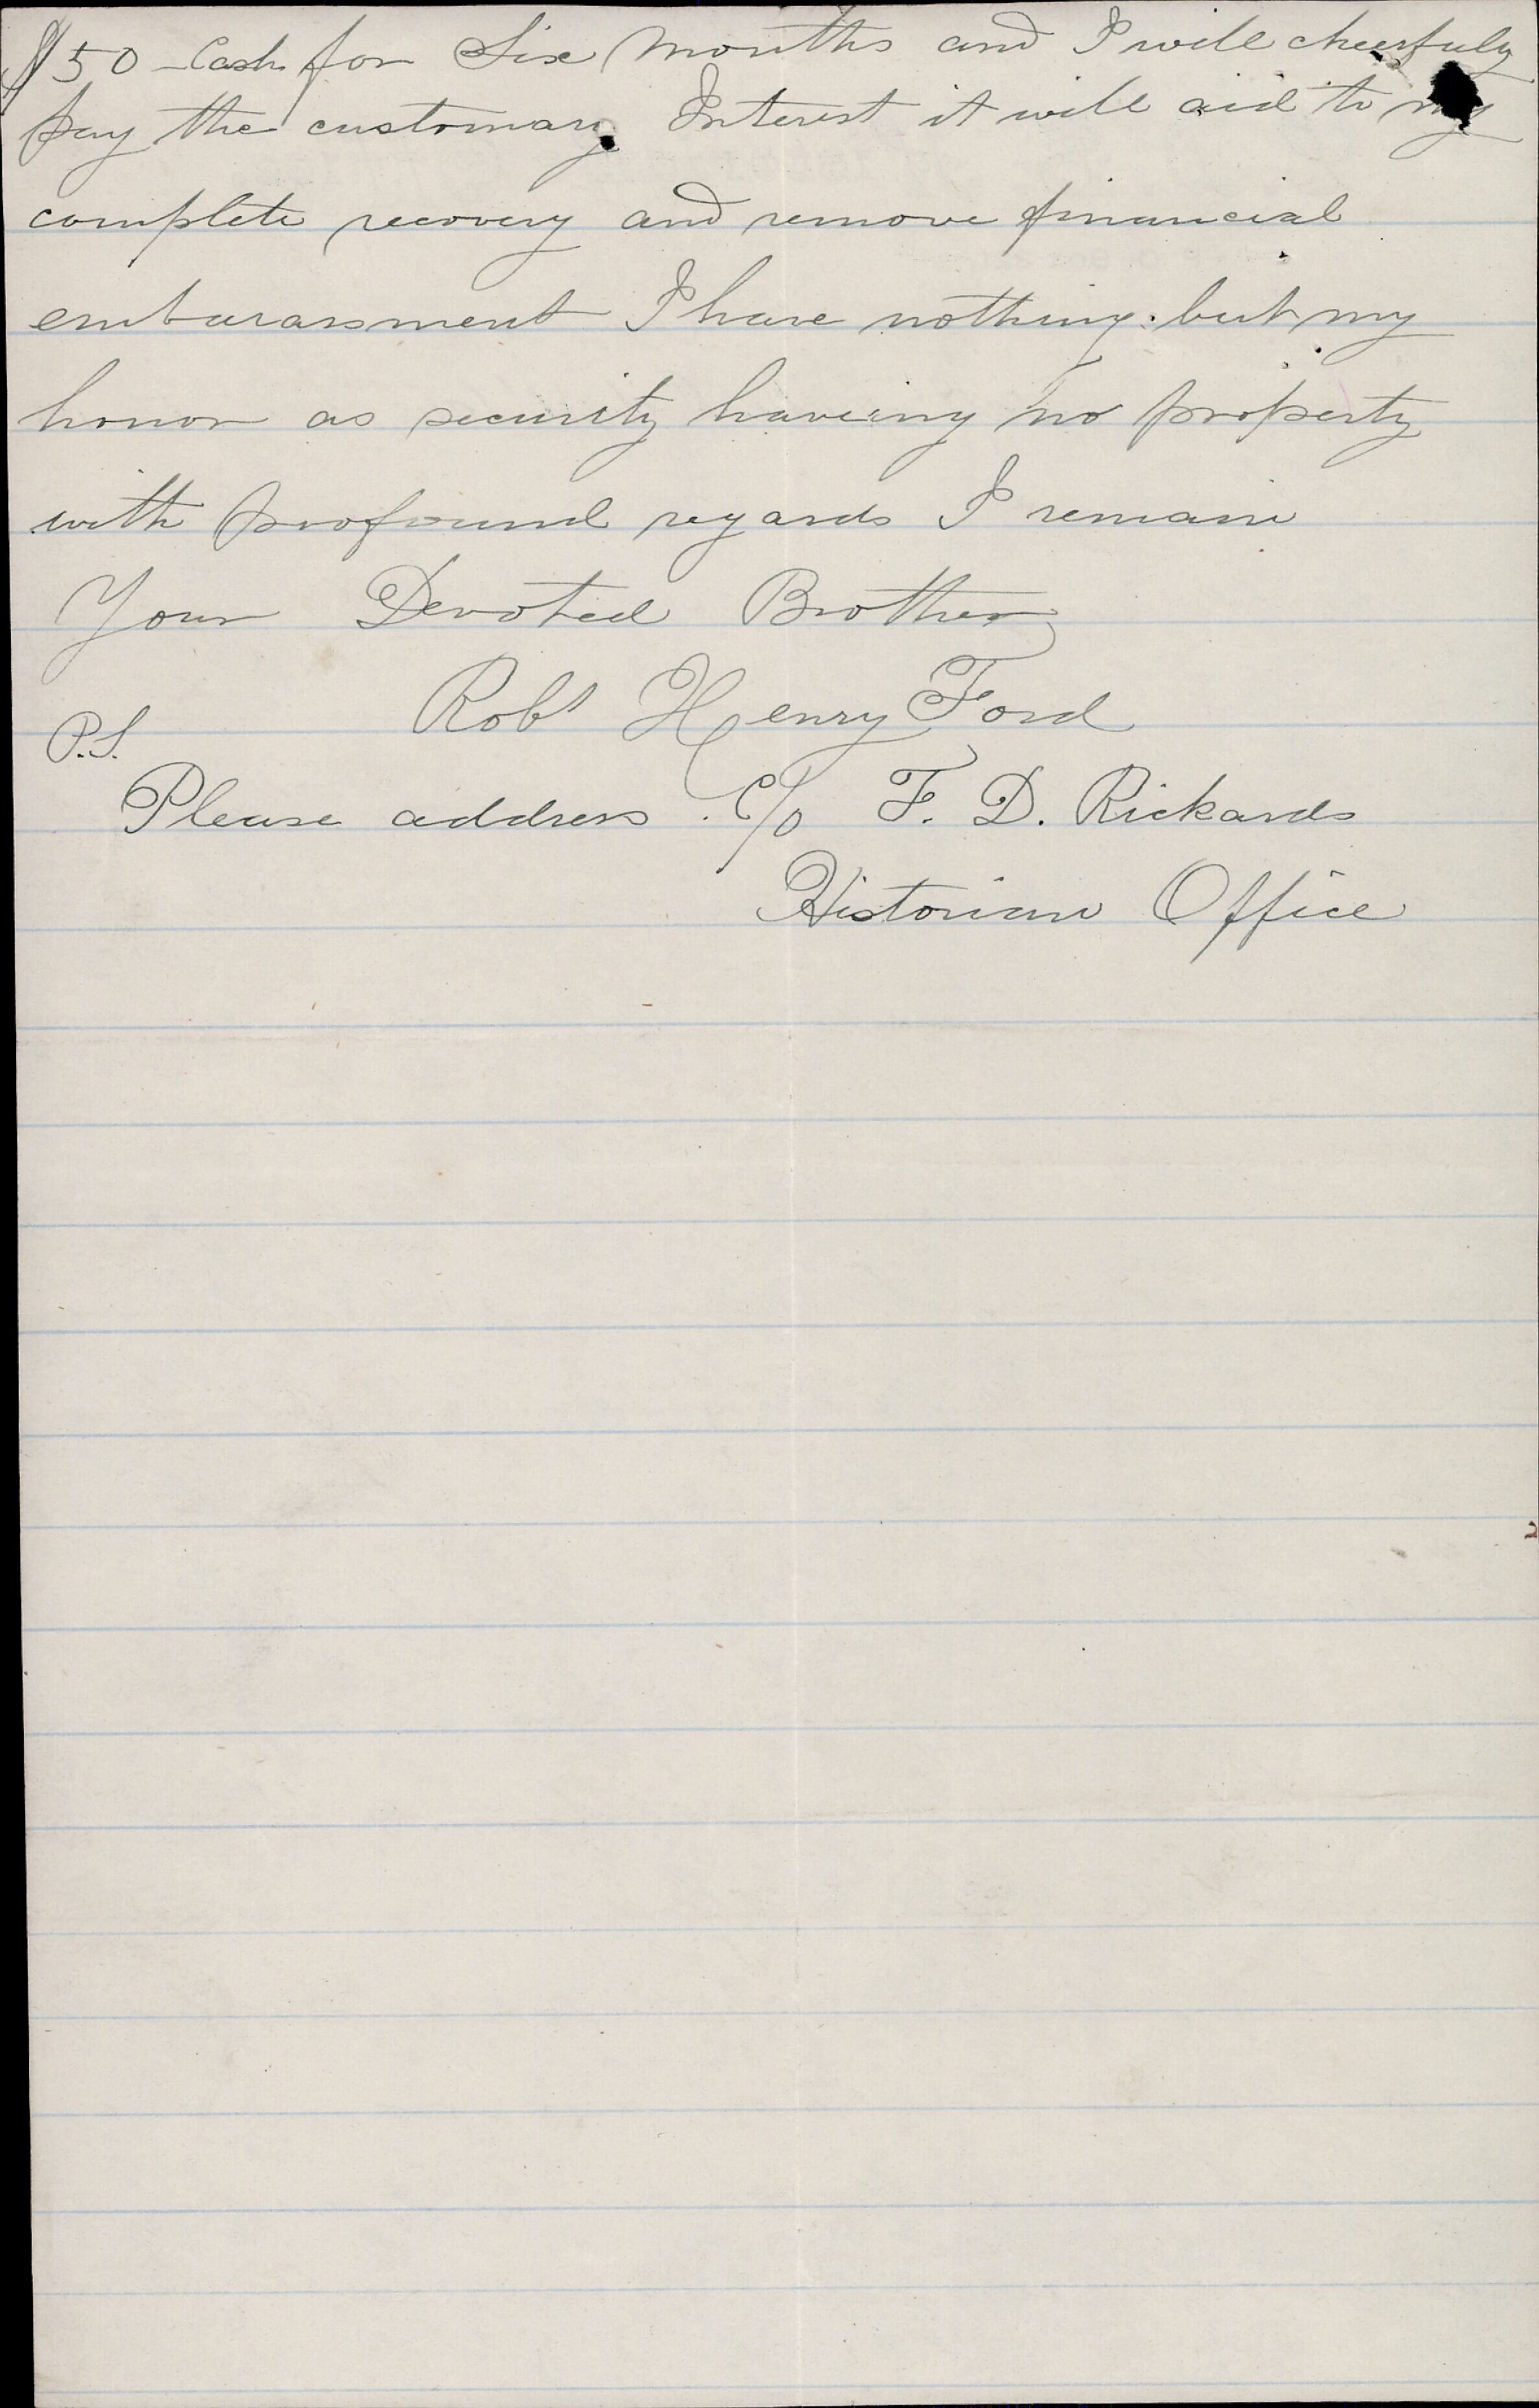 $50 - Cash for Six Months and I will cheerfuly
pay the customary Interest it will aid to my
complete recovery and remove financial
embarassment I have nothing but my
honor as security haveing no property
with profound regards I remain
Your Devoted Brother
Robt Henry Ford
P.S.
Please address. c/o F. D. Rickards
Historian Office